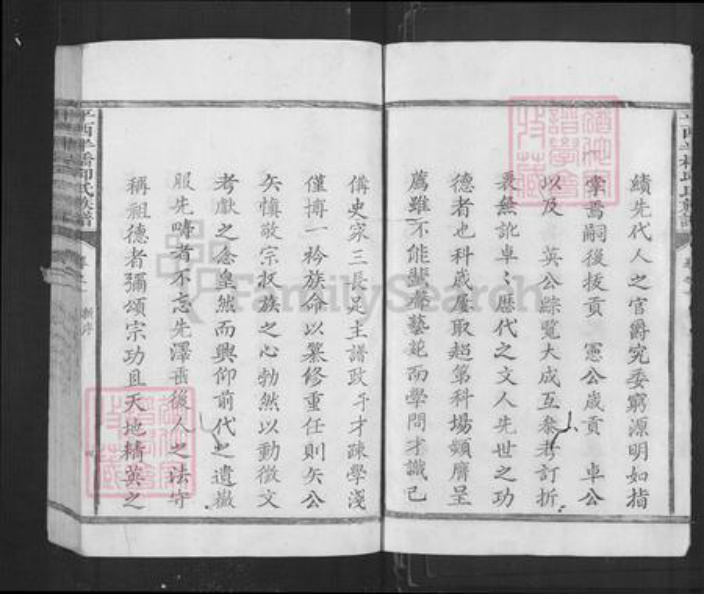 績先代人之官爵究委窮源明如指
掌焉嗣後拔貢 憲公歲貢 卓公
以及 英公綜覽大成互參考訂折
衷無訛卓卓歷代之文人先世之功
德者也科歲屢取超第科場頻膺呈
薦雖不能蜚聲藝苑而學問才識已
備史家三長足主譜政予才疎學淺
僅博一衿族命以纂修重任則矢公
矢慎敬宗收族之心勃然以動徵文
考獻之念皇然而興仰前代之遺徽
服先疇者不忘先澤垂後人之法守
稱祖德者彌頌宗功且天地精英之
氏族譜
新序
FamilySearch